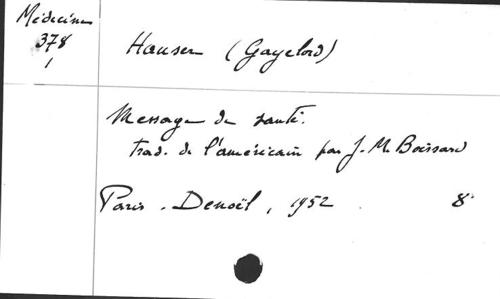 Médecine
378
1
Hauser (Gayelord)
Message de santé.
trad. de l'américain par J. M. Boissard
Paris. Denoël, 1952. 8°